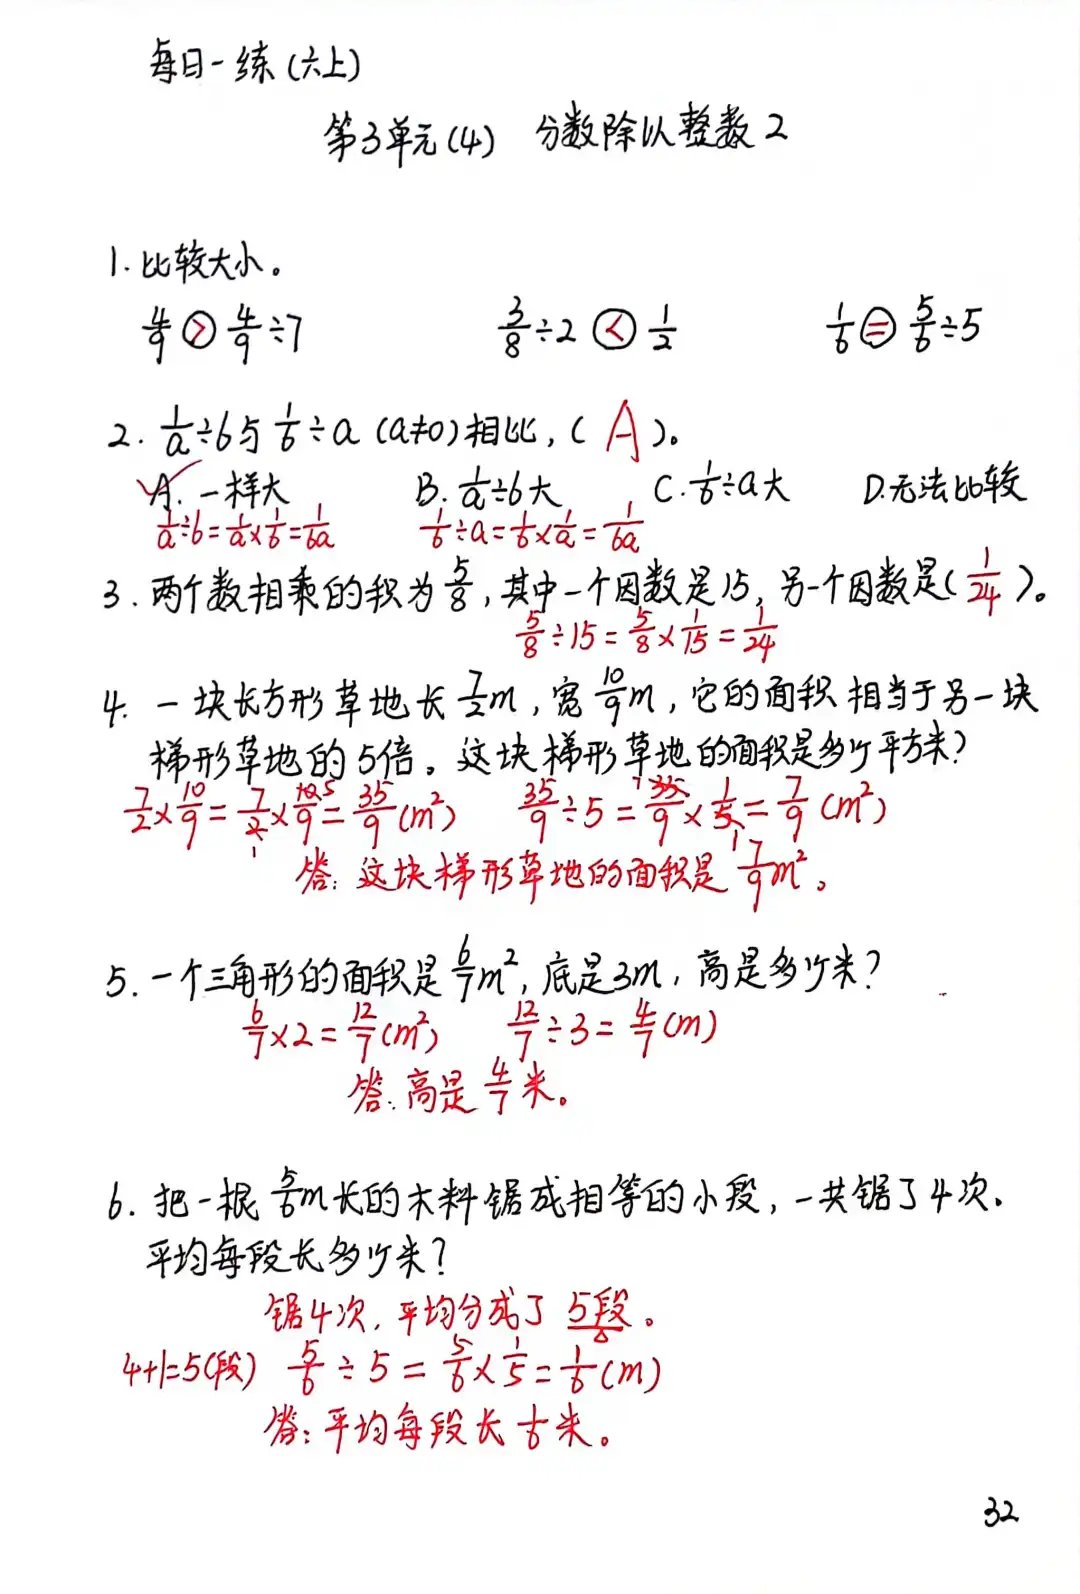 每日一练(六上)
第3单元(4) 分数除以整数2
1.比较大小。
4/9 > 4/9÷7 3/8÷2 < 1/2 1/6 = 5/6÷5
2. 1/a÷6与1/6÷a (a≠0)相比,( A )。
A.一样大 B. 1/a÷6大 C. 1/6÷a大 D.无法比较
1/a÷6=1/a×1/6=1/6a 1/6÷a=1/6×1/a=1/6a
3.两个数相乘的积为5/8,其中一个因数是15,另一个因数是( 1/24 )。
5/8÷15=5/8×1/15=1/24
4. 一块长方形草地长7/2m,宽10/9m,它的面积相当于另一块
梯形草地的5倍。这块梯形草地的面积是多少平方米?
7/2×10/9=7/2×10/9=35/9(m²) 35/9÷5=35/9×1/5=7/9(m²)
答:这块梯形草地的面积是7/9m²。
5.一个三角形的面积是6/7m²,底是3m,高是多少米?
6/7×2=12/7(m²) 12/7÷3=4/7(m)
答:高是4/7米。
6.把一根5/6m长的木料锯成相等的小段,一共锯了4次。
平均每段长多少米?
锯4次,平均分成了5段。
4+1=5(段) 5/6÷5=5/6×1/5=1/6(m)
答:平均每段长1/6米。
32